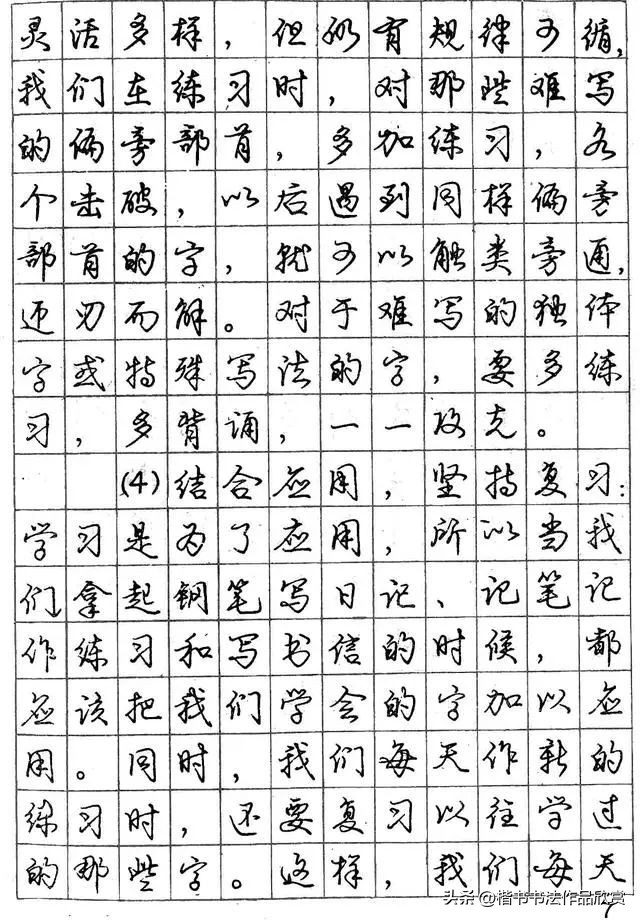 灵活多样，但仍有规律可循，
我们在练习时，对那些难写
的偏旁部首，多加练习，各
个击破，以后遇到同样偏旁
部首的字，就可以触类旁通，
迎刃而解。对于难写的独体
字或特殊写法的字，要多练
习，多背诵，一一攻克。
(4)结合应用，坚持复习：
学习是为了应用，所以当我
们拿起钢笔写日记、记笔记
作练习和写书信的时候，都
应该把我们学会的字加以应
用。同时，我们每天作新的
练习时，还要复习以往学过
的那些字。这样，我们每天
头条@楷书书法作品欣赏